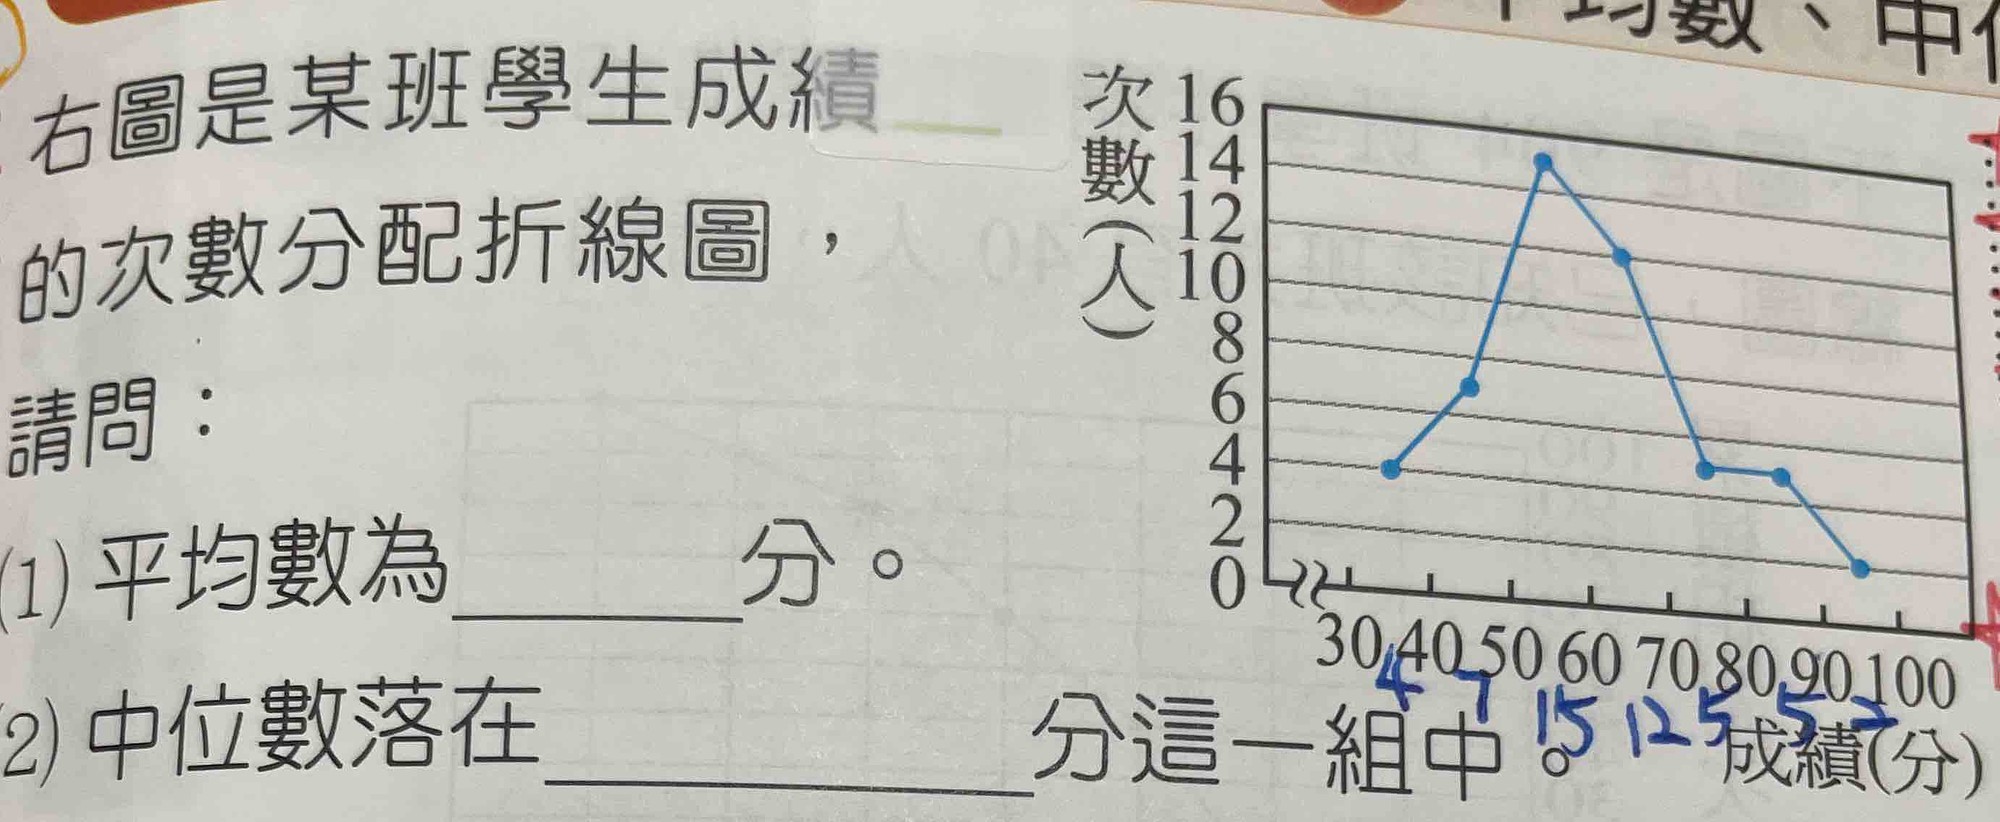 均數、中
右圖是某班學生成績
的次數分配折線圖，
請問：
(1) 平均數為 分。
(2) 中位數落在 分這一組中。
次數(人)
16
14
12
10
8
6
4
2
0
30 40 50 60 70 80 90 100
4 7 15 12 5 5 2
成績(分)